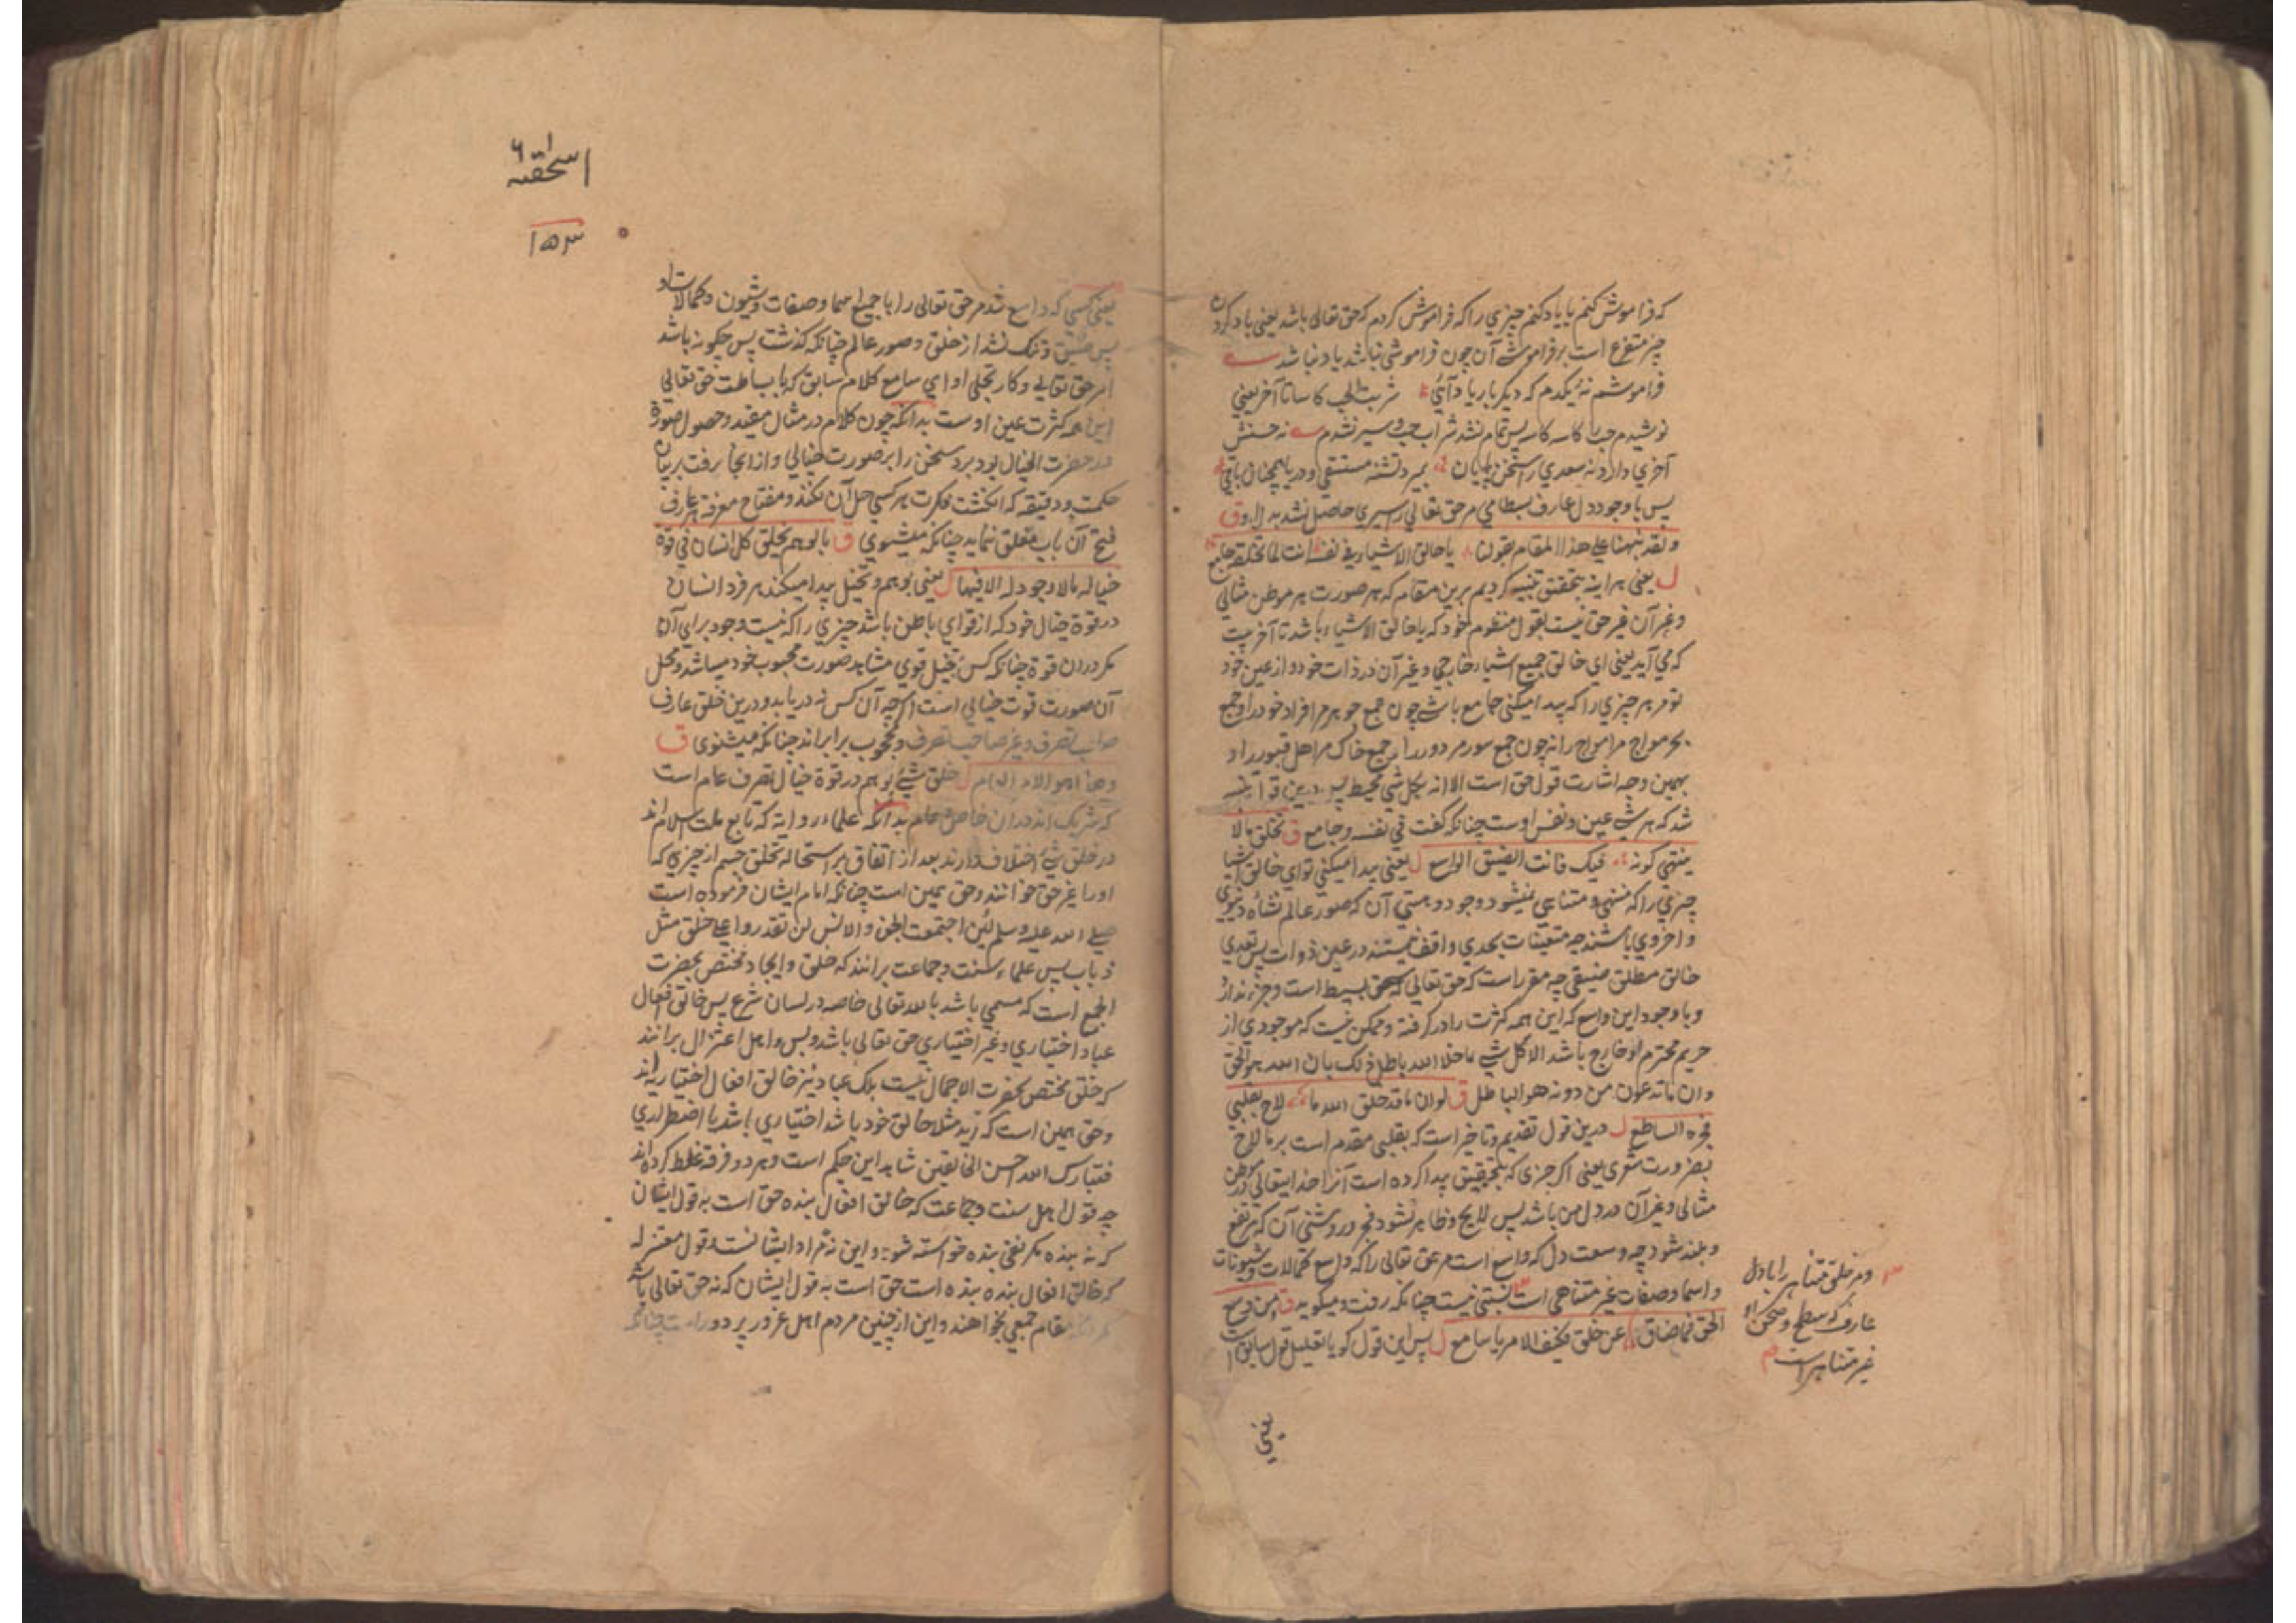 که فراموش کنم یا یاد کنم چیزی را که فراموش کردم که حق تعالی باشد یعنی یاد کردن
چیز متفرع است بر فراموشی آن چون فراموشی نباشد یاد نباشد
فراموشم نۀ یکدم که دیگر بار یاد آیی شربت الحب کاسا تا آخر یعنی
نوشیدم حب را کاسه کاسه پس تمام نشد شراب حب و سیر نشدم نه حسنش
آخری دارد نه سعدی را سخن پایان بمیرد تشنه مستسقی و دریا همچنان باقی
پس با وجود دل عارف بسطامی مر حق تعالی را سیری حاصل نشد بدل او ق
ولقد نبهنا علی هذا المقام بقولنا یا خالق الاشیاء فی نفسه انت لما تخلقه جامع
ل یعنی هر اینه بتحقیق تنبیه کردیم برین مقام که هر صورت هر موطن مثالی
وغیر آن غیر حق نیست بقول منظوم خود که یا خالق الاشیاء باشد تا آخر بیت
که می آید یعنی ای خالق جمیع اشیاء خارجی وغیر آن در ذات خود و از عین خود
تو مر هر چیزی را که پیدا میکنی جامع باشی چون جمع جوهر مر افراد خود را و جمع
بحر مواج مر امواج را نه چون جمع سور مر دور را و جمع خاک مر اهل قبور را و
بهمین وجه اشارت قول حق است الا انه بکل شی محیط
شد که هر شی عین و نفس اوست چنانکه گفت فی نفسه و جامع ق تخلق مالا
ینتهی کونه فیک فانت الضیق الواسع ل یعنی پیدا میکنی تو ای خالق اشیا
چیزی را که منتهی و متناهی نمیشود وجود و هستی آن که صور عالم نشأه دنیوی
و اخروی باشند چه متعینات بحدی واقف نیستند در عین ذوات پس تعدی
خالق مطلق ضیقی چه مقرر است که حق تعالی بسیط است و جزء ندارد
و با وجود این واسع که این همه کثرت را در گرفته و ممکن نیست که موجودی از
حریم محترم او خارج باشد الا کل شی ما خلا الله باطل ذلک بان الله هو الحق
وان ما تدعون من دونه هو الباطل ق لو ان ما قد خلق الله ما لاح بقلبی
فجره الساطع ل درین قول تقدیم و تاخیر است که بقلبی مقدم است بر ما لاح
بضرورت شعری یعنی اگر چیزی که بتحقیق پیدا کرده است آنرا خدایتعالی در موطن
مثالی وغیر آن در دل من باشد پس لایح و ظاهر نشود فجر و روشنی آن که مرتفع
و بلند شود چه وسعت دل که واسع است مر حق تعالی را که واسع کمالات و شیونات
و اسما و صفات غیر متناهی است نسبتی نیست چنانکه رفت و میگوید ق من وسع
الحق فما ضاق عن خلق فکیف الامر یا سامع ل پس این قول گویا تعلیل قول سابق است
و مر خلق متناهی را با دل
عارف که سطح و صحن او
غیر متناهی است م
یعنی
اسحقیه
۱۵۳
یعنی کسی که واسع شد مر حق تعالی را با جمیع اسما و صفات و شیون و کمالات او
پس ضیق و تنگ نشد از خلق و صور عالم چنانکه گذشت پس چگونه باشد
امر حق تعالی و کار تجلی او ای سامع کلام سابق که با بساطت حق تعالی
این همه کثرت عین اوست بدانکه چون کلام در مثال مقید و حصول صورة
در حضرت الخیال بود برد سخن را بر صورت خیالی و از اینجا رفت بر بیان
حکمت و دقیقه که انگشت فکرت هر کسی حل آن نکند و مفتاح معرفت هر عارف
فتح آن باب مغلق ننماید چنانکه میشنوی ق بالوهم یخلق کل انسان فی قوة
خیاله مالا وجود له الا فیها ل یعنی بوهم و تخیل پیدا میکند هر فرد انسان
در قوة خیال خود که از قوای باطن باشد چیزی را که نیست وجود برای آن
مگر در ان قوة چنانکه کس بتخیل قوی مشاهد صورت محبوب خود میباشد و محل
آن صورت قوت خیالی است اگرچه آن کس نه دریابد و درین خلق عارف
صاحب تصرف و غیر صاحب تصرف و محجوب برابر اند چنانکه میشنوی ق
وهذا هو الامر العام ل خلق شیء بوهم در قوة خیال تصرف عام است
که شریک اند در ان خاص و عام بدانکه علماء روایة که تابع ملت اسلام اند
در خلق شیء اختلاف دارند بعد از اتفاق بر استحاله تخلق جسم از چیزی که
او را غیر حق خوانند و حق همین است چنانکه امام ایشان فرموده است
صلی الله علیه وسلم لئن اجتمعت الجن والانس لن تقدروا علی خلق مثل
ذباب پس علماء سنت و جماعت برانند که خلق و ایجاد مختص بحضرت
الجمع است که مسمی باشد بالله تعالی خاصه در لسان شرع پس خالق افعال
عباد اختیاری و غیر اختیاری حق تعالی باشد و بس و اهل اعتزال برانند
که خلق مختص بحضرت الاجمال نیست بلک عباد نیز خالق افعال اختیاریه اند
و حق همین است که زید مثلا خالق خود باشد اختیاری باشد یا اضطراری
فتبارک الله احسن الخالقین شاهد این حکم است و هر دو فرقه غلط کرده اند
چه قول اهل سنت و جماعت که خالق افعال بنده حق است به قول ایشان
که نه بنده مگر نفی بنده خواسته شود و این نه مراد ایشانست و قول معتزله
که خالق افعال بنده بنده است حق است به قول ایشان که نه حق تعالی باشد
مقام جمعی نخواهند و این از چنین مردم اهل غرور پر دور است چنانکه